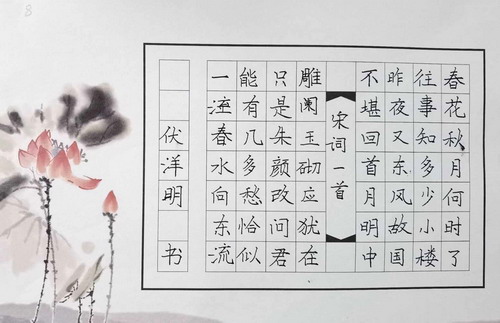 8
春花秋月何时了
往事知多少小楼
昨夜又东风故国
不堪回首月明中
宋词一首
雕阑玉砌应犹在
只是朱颜改问君
能有几多愁恰似
一春水向东流
伏洋明 书